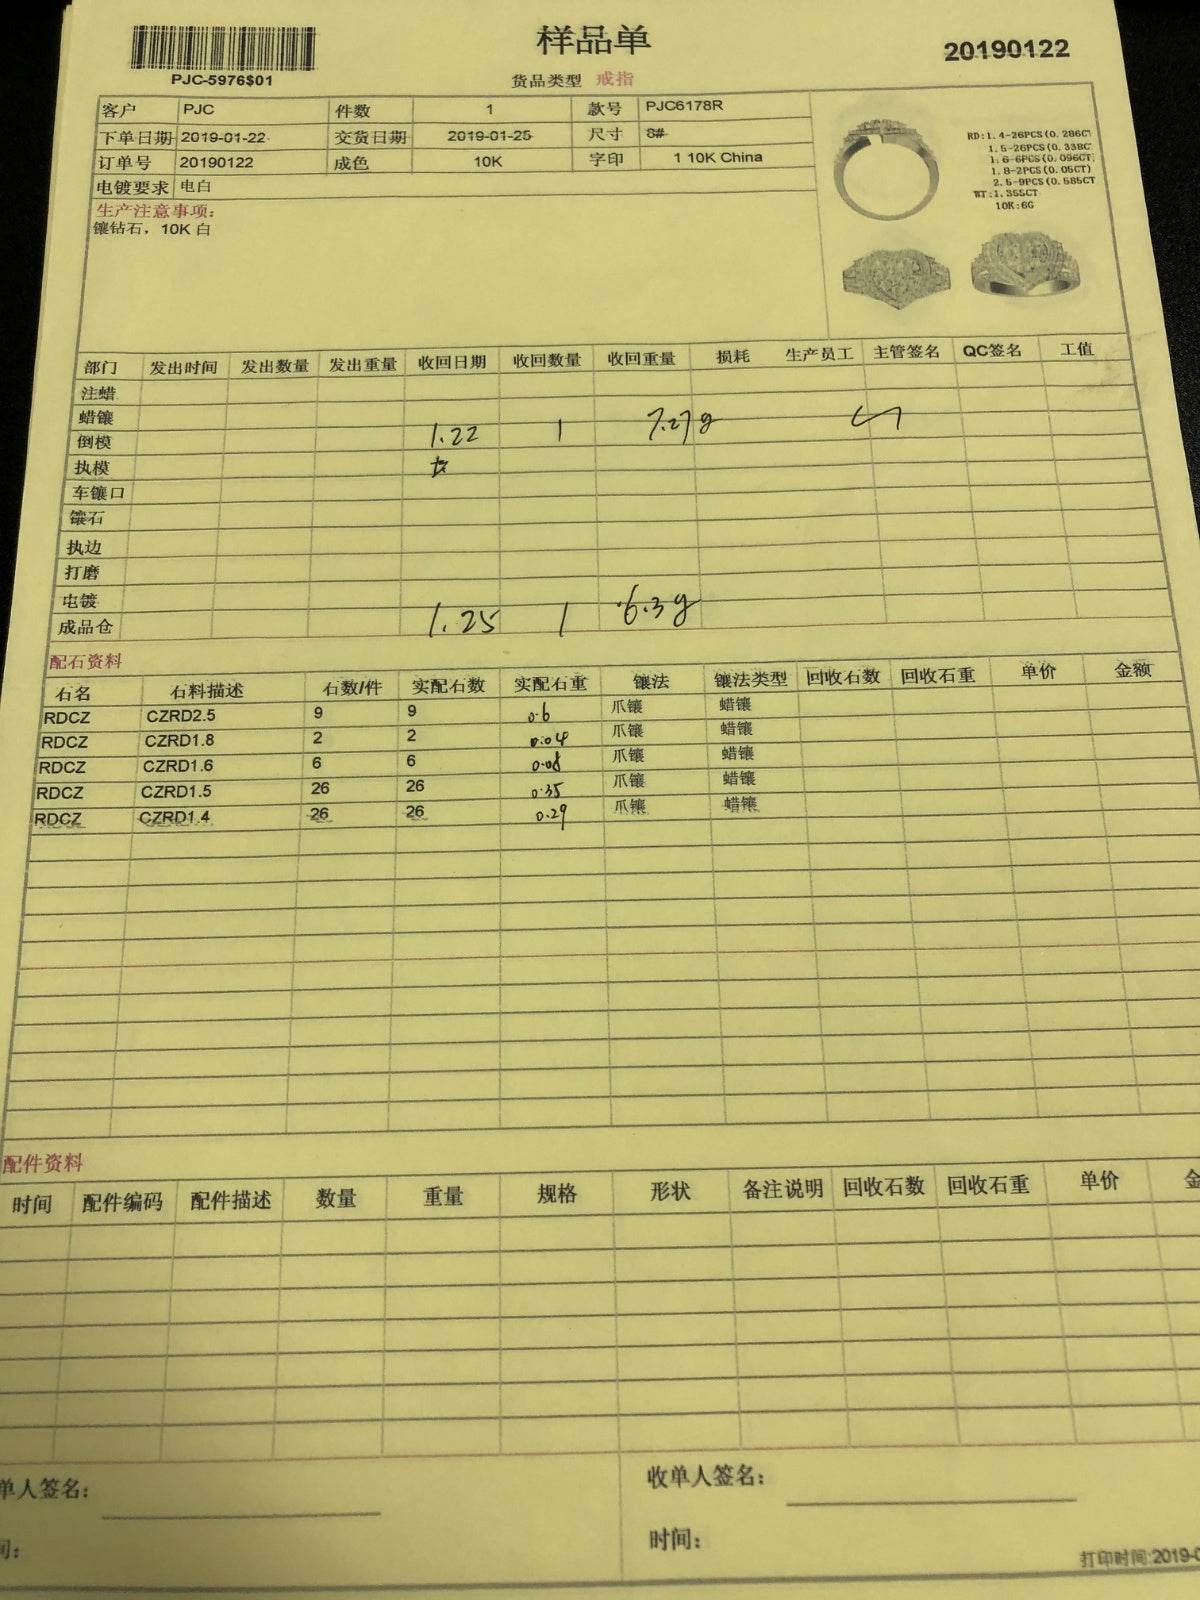 样品单
20190122
PJC-5976$01
货品类型 戒指
客户 PJC 件数 1 款号 PJC6178R
下单日期 2019-01-22 交货日期 2019-01-25 尺寸 8#
订单号 20190122 成色 10K 字印 1 10K China
电镀要求 电白
生产注意事项:
镶钻石，10K 白
RD:1.4-26PCS(0.286CT
1.5-26PCS(0.338CT
1.6-6PCS(0.096CT)
1.8-2PCS(0.05CT)
2.5-9PCS(0.585CT
WT:1.355CT
10K:6G
部门 发出时间 发出数量 发出重量 收回日期 收回数量 收回重量 损耗 生产员工 主管签名 QC签名 工值
注蜡
蜡镶
倒模 1.22 1 7.27g
执模
车镶口
镶石
执边
打磨
电镀
成品仓 1.25 1 6.3g
配石资料
石名 石料描述 石数/件 实配石数 实配石重 镶法 镶法类型 回收石数 回收石重 单价 金额
RDCZ CZRD2.5 9 9 0.6 爪镶 蜡镶
RDCZ CZRD1.8 2 2 0.04 爪镶 蜡镶
RDCZ CZRD1.6 6 6 0.08 爪镶 蜡镶
RDCZ CZRD1.5 26 26 0.35 爪镶 蜡镶
RDCZ CZRD1.4 26 26 0.29 爪镶 蜡镶
配件资料
时间 配件编码 配件描述 数量 重量 规格 形状 备注说明 回收石数 回收石重 单价 金
单人签名: 收单人签名:
间: 时间:
打印时间:2019-0